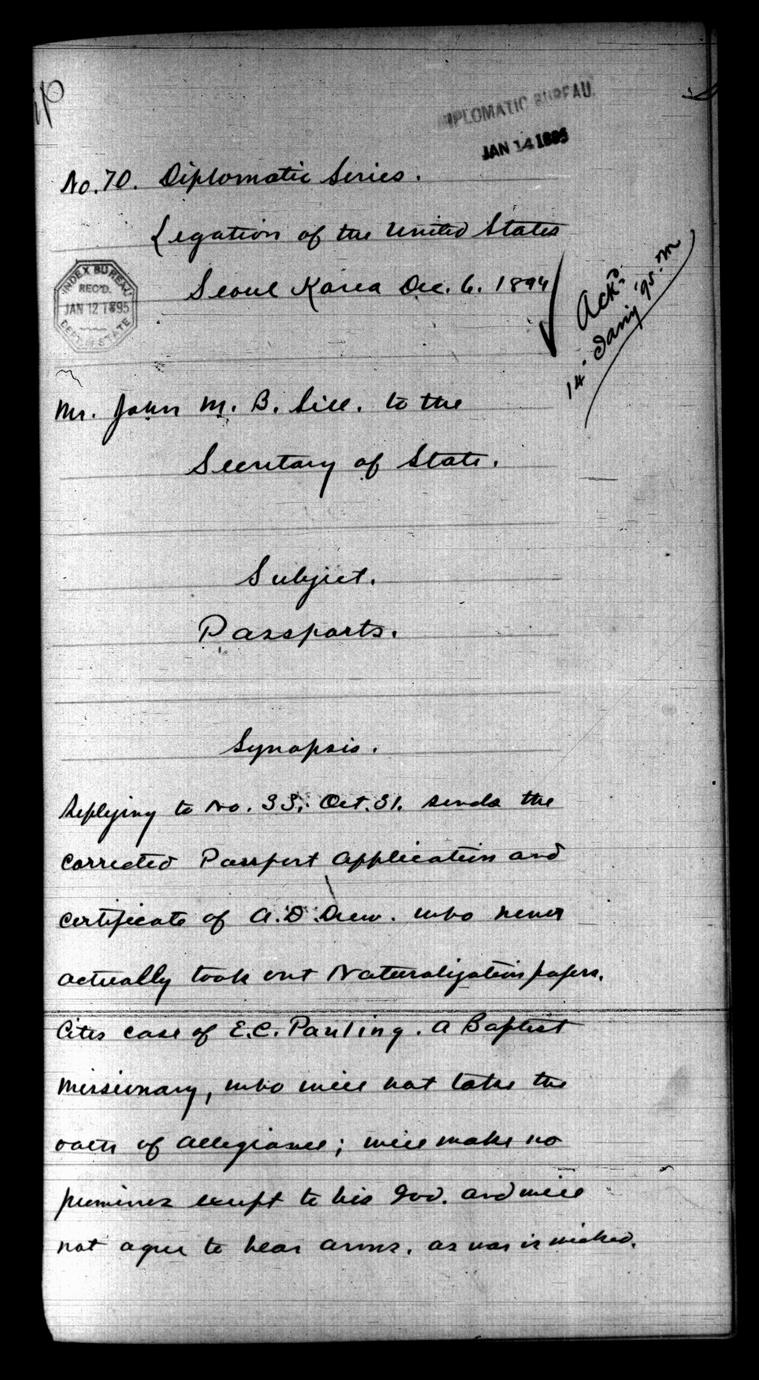 DIPLOMATIC BUREAU.
JAN 14 1895
No. 70. Diplomatic Series.
Legation of the United States
Seoul Korea Dec. 6. 1894
INDEX BUREAU
REC'D.
JAN 12 1895
DEPT. OF STATE
Ackd.
14 Jany '95.
Mr. John M. B. Sill. to the
Secretary of State.
Subject.
Passports.
Synopsis.
Replying to No. 33, Oct. 31. sends the
corrected Passport application and
certificate of A. D. Drew. who never
actually took out Naturalization papers.
Cites case of E.C. Pauling. a Baptist
Missionary, who will not take the
oath of allegiance; will make no
promises except to his God. and will
not agree to bear arms. as war is wicked.